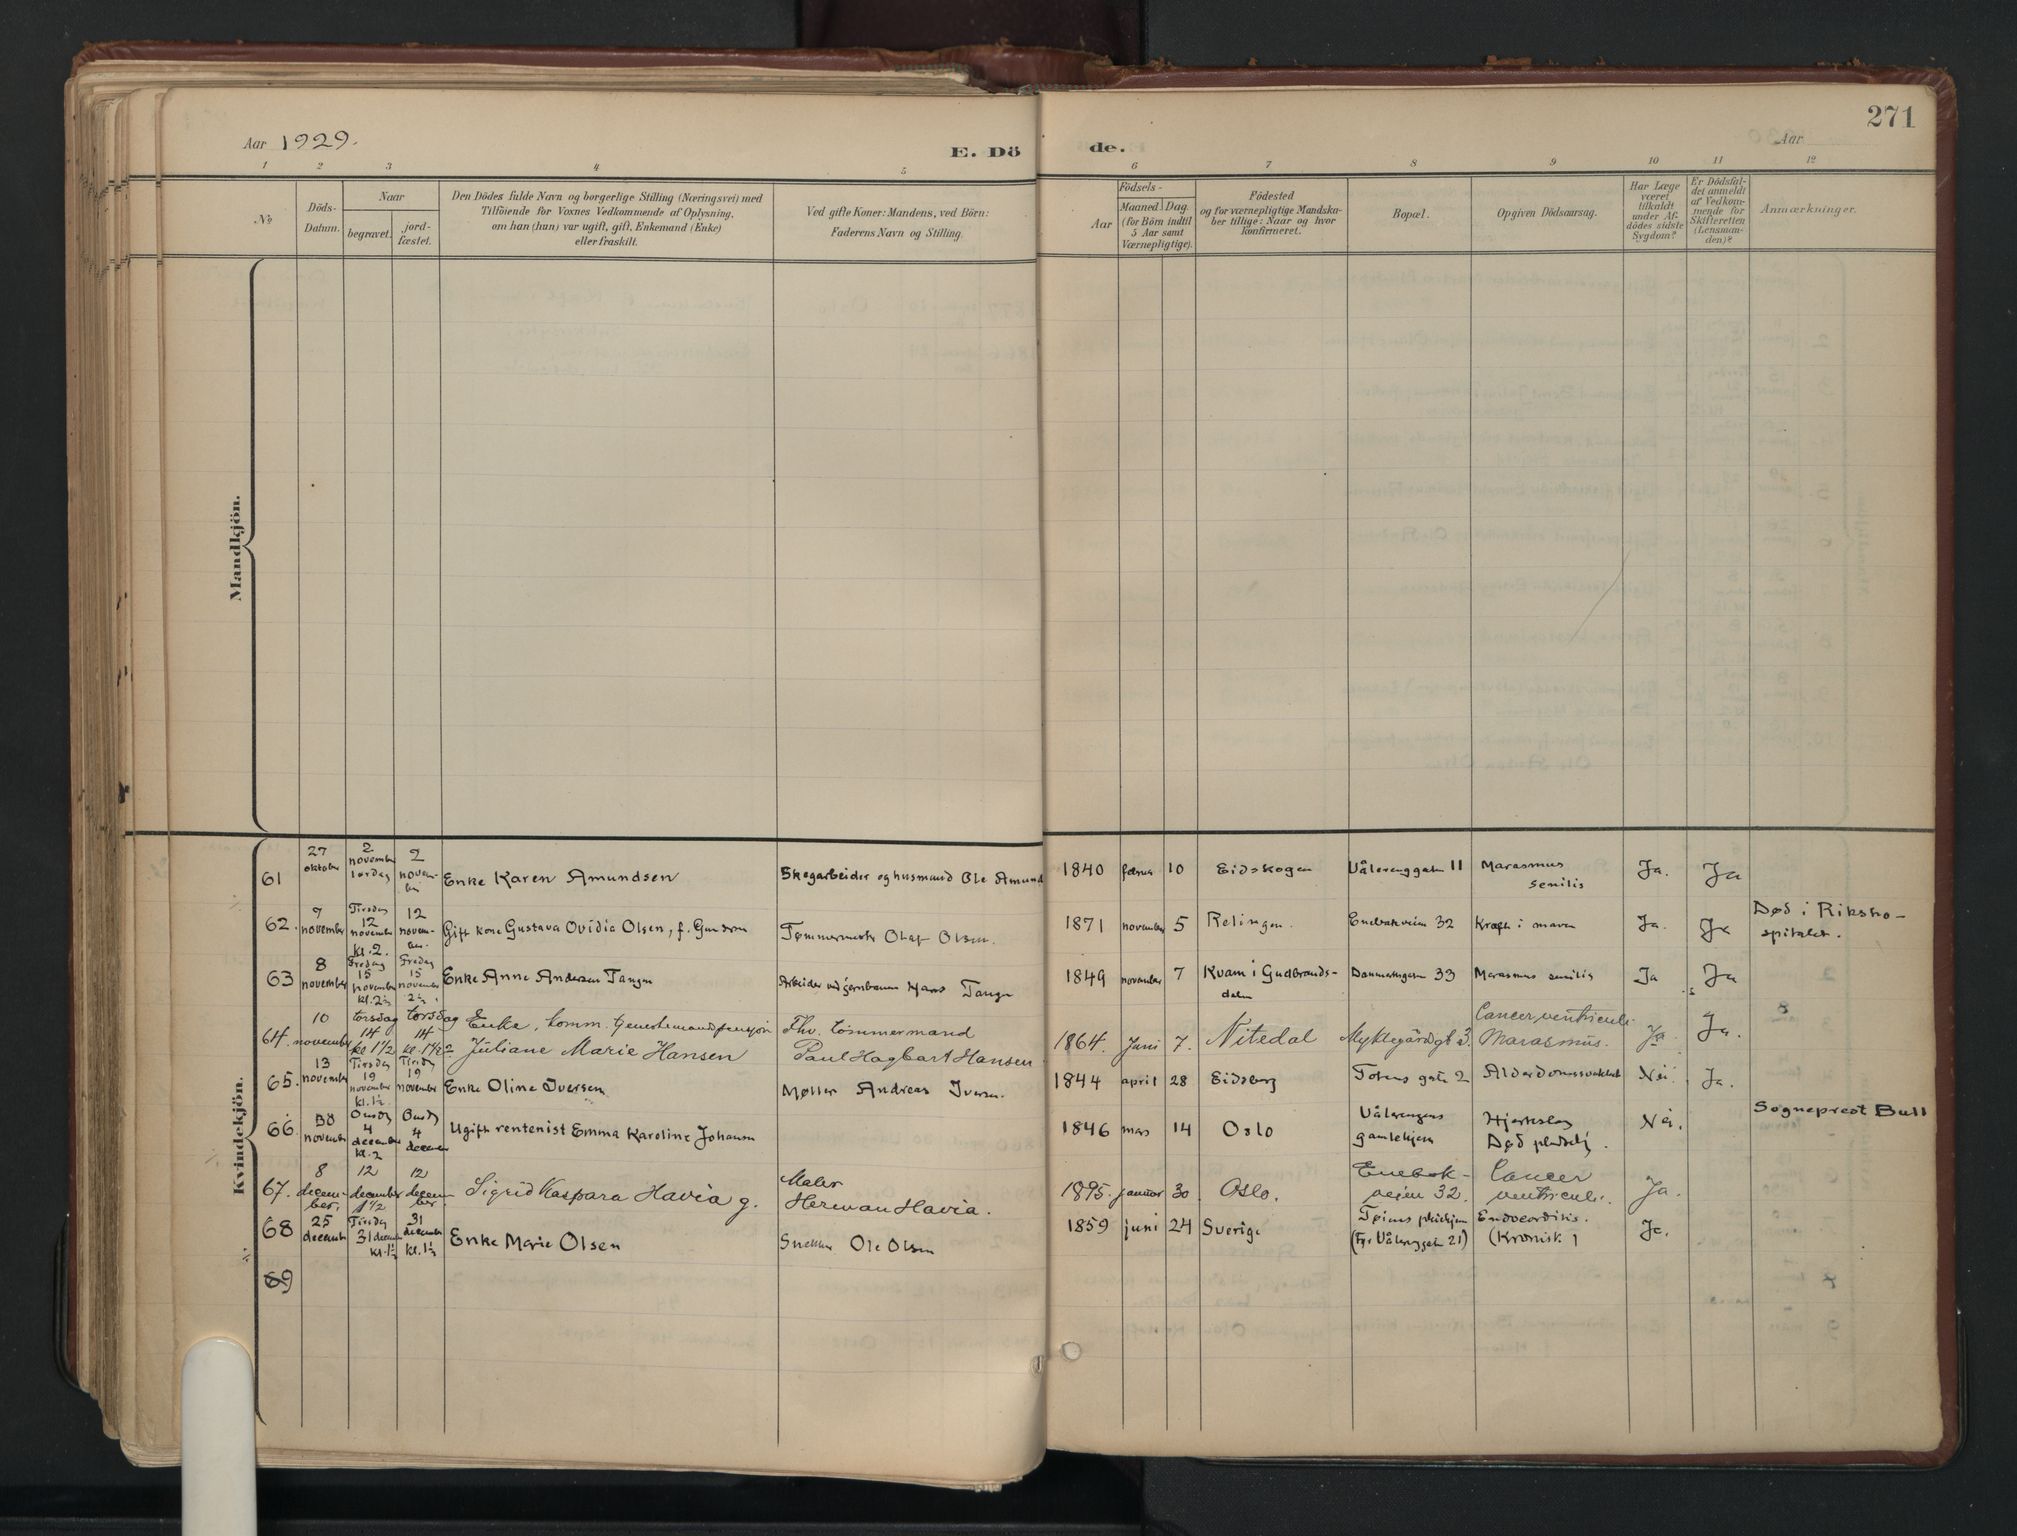 271
Aar 1929.
E. Döde.
Aar
1 2 3 4 5 6 7 8 9 10 11 12
No
Döds-
Datum.
Naar
begravet.
jord-
fæstet.
Den Dödes fulde Navn og borgerlige Stilling (Næringsvei) med
Tilföiende for Voxnes Vedkommende af Oplysning,
om han (hun) var ugift, gift, Enkemand (Enke)
eller fraskilt.
Ved gifte Koner: Mandens, ved Börn:
Faderens Navn og Stilling.
Födsels-
Aar
Maaned Dag
(for Börn indtil
5 Aar samt
Værnepligtige).
Födested
og for værnepligtige Mandska-
ber tillige: Naar og hvor
konfirmeret.
Bopæl.
Opgiven Dödsaarsag.
Har Læge
været
tilkaldt
under Af-
dödes sidste
Sygdom?
Er Dödsfal-
det anmeldt
af Vedkom-
mende for
Skifteretten
(Lensman-
den)?
Anmærkninger.
Mandkjön.
Kvindekjön.
61 27 oktober 2 november lørdag 2 novem-ber Enke Karen Amundsen Skogarbeider og husmand Ole Amund 1840 februar 10 Eidskogen Vålerenggaten 11 Marasmus senilis Ja. Ja
62. 9 november Tirsdag 12 november kl. 2. 12 novem-ber. Gift kone Gustava Ovidia Olsen, f. Gundersen Tømmermester Olaf Olsen. 1871 november 5 Relingen. Enebakveien 32 Kræft i maven Ja. Ja Død i Riksho-spitalet.
63 8 november Fredag 15 november kl. 2½ Fredag 15 november 2½ Enke Anne Andersen Tangen Arbeider ved jernbanen Hans Tangen 1849 november 7 Kvam i Gudbrands-dalen Danmarksgaten 33 Marasmus senilis Ja Ja
64. 10 november torsdag 14 kl 1½ torsdag 14 kl. 1½ Enke, komm. tjenestemandspensjon Juliane Marie Hansen Fhv. tømmermand Paul Hagbart Hansen 1864. Juni 7. Nitedal Myklegårdgt 3. Cancer ventriculi. Marasmus. Ja Ja.
65. 13 november Tirsdag 19 november kl. 1½ Tirsdag 19 november Enke Oline Iversen Møller Andreas Iversen. 1844 april 28 Eidsberg Totens gate 2 Alderdomssvakhet Nei. Ja.
66. november Onsdag 4 december kl. 2 Onsdag 4 december Ugift rentenist Emma Karoline Johansen 1846 mars 14 Oslo Vålerengens gamlehjem Hjerteslag Død pludselig. Nei. Sogneprest Bull
67. 8 decem-ber. 12 december 1½ 12 decem-ber. Sigrid Kaspara Havia g. Maler Herman Havia. 1895. januar 30. Oslo. Enebak-veien 32. Cancer ventriculi. Ja.
68 25 december Tirsdag 31 december kl. 1½ 31 december kl. 1½ Enke Marie Olsen Snekker Ole Olsen 1859 juni 24 Sverige Tøiens pleiehjem (Før Vålerenggaten 21) Endocarditis. (Kronisk) Ja.
69